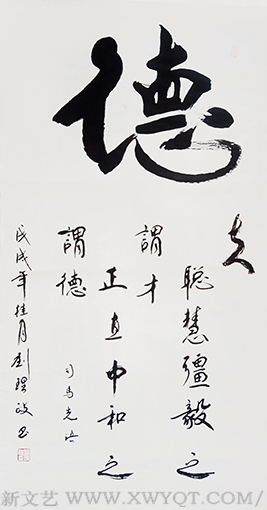 德
夫
聰慧彊毅之
謂才
正直中和之
謂德
司马光语
戊戌年桂月刘
新文艺 WWW.XWYQT.COM/